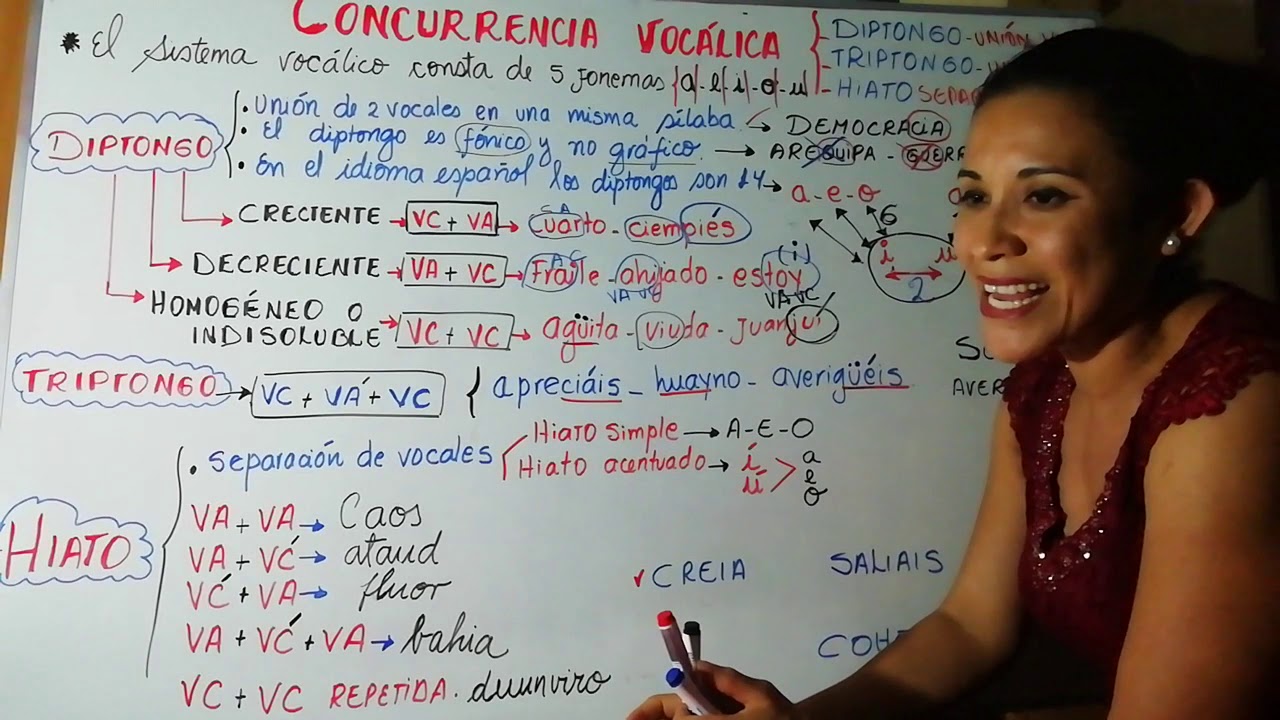 CONCURRENCIA VOCÁLICA
DIPTONGO - UNIÓN
TRIPTONGO -
HIATO
* El sistema vocálico consta de 5 fonemas |a|-|e|-|i|-|o|-|u|
DIPTONGO
• Unión de 2 vocales en una misma sílaba → DEMOCRACIA
• El diptongo es fónico y no gráfico. → AREQUIPA - GUERRA
• En el idioma español los diptongos son 14 → a-e-o
6
i u
2
CRECIENTE → VC + VA → cuarto - ciempiés
DECRECIENTE → VA + VC → Fraile - ahijado - estoy
(i)
VA VC
VA VC
HOMOGÉNEO O
INDISOLUBLE → VC + VC → agüita - viuda - Juanjuí
TRIPTONGO → VC + VÁ + VC { apreciáis - huayno - averigüéis
AVER
HIATO
• Separación de vocales
Hiato simple → A-E-O
Hiato acentuado → í ú > a e o
VA + VA → Caos
VA + VĆ → ataud
VĆ + VA → fluor
VA + VĆ + VA → bahia
VC + VC REPETIDA. duunviro
✓ CREIA
SALIAIS